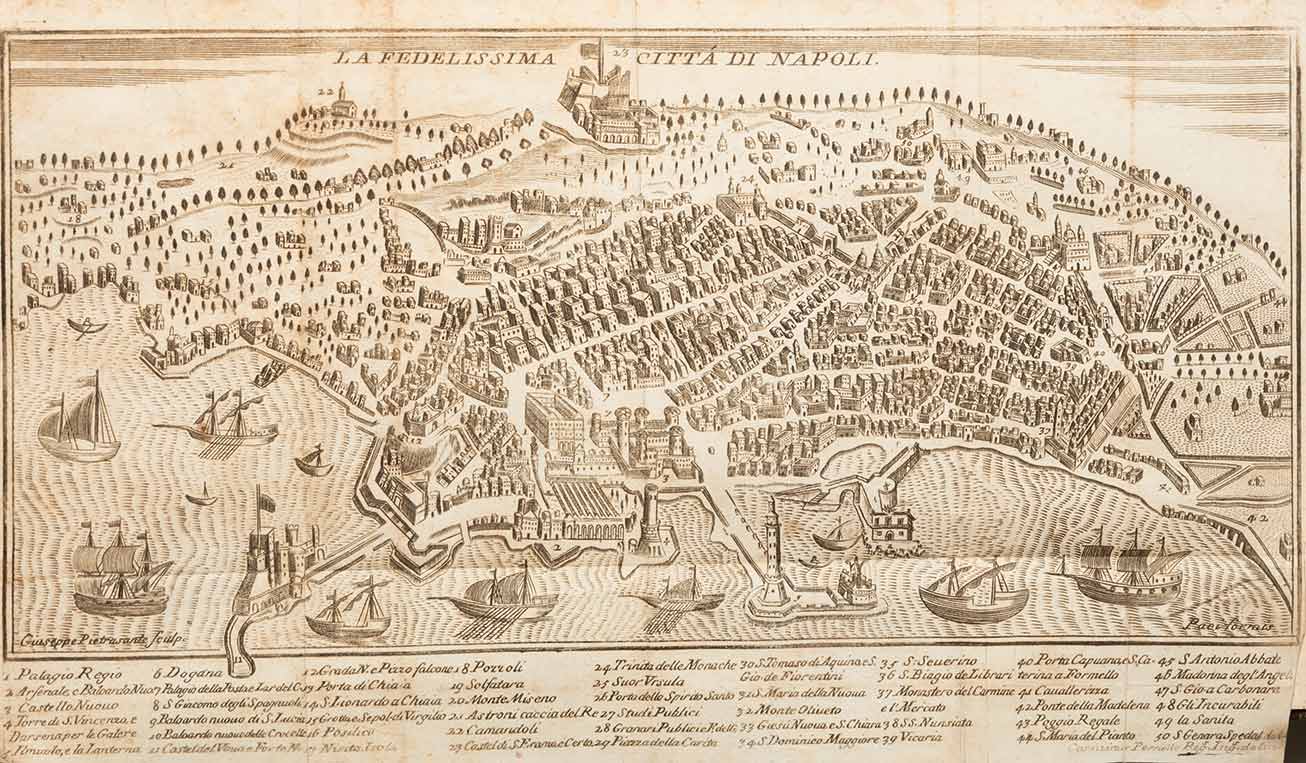 LA FEDELISSIMA 23 CITTÁ DI NAPOLI.
22
21
18
24
49
44
40
7
7
12
37
3
41
42
2
4
Giuseppe Pietrasante Sculp.
11
1 Palagio Regio
2 Arsenale, e Baloardo Nuo
3 Castello Nuouo
4 Torre di S. Vincenza, e
Darsena per le Galere
e la Lanterna
6 Dogana
8 S Giacomo degli Spagnuoli
9 Baloardo nuouo di S. Lucia
10 Baloardo nuouo delle Crocelle
11 Castel del Vouo e Forte No
12 Grada N. e Pizzo falcone
13 Porta di Chiaia
14 S. Lionardo a Chiaia
15 Grotta e Sepol. di Virgilio
16 Posilico
17 Nisita Isola
18 Pozzoli
19 Solfatara
20 Monte Miseno
21 Astroni caccia del Re
22 Camandoli
23 Castel di S. Eramo e Certo.
24 Trinita delle Monache
25 Suor Vrsula
26 Porta dello Spirdo Santo
27 Studi Publici
28 Granari Publici e F. delli
29 Piazza della Carita
30 S. Tomaso di Aquino e S.
Gio de Fiorentini
31 S. Maria della Nuoua
32 Monte Oliueto
33 Giesú Nuoua e S. Chiara
34 S. Dominico Maggiore
35 S: Seuerino
36 S. Biagio de Librari
37 Monastero del Carmine
e l. Mercato
38 SS. Nunsiata
39 Vicaria
40 Porta Capuana, e S. Ca-
terina a Formello
41 Cauallerizza
42 Ponte della Madalena
43 Poggio Regale
44 S. Maria del Pianto
45 S Antonio Abbate
46 Madorina degl' Angeli
47 S Gio a Carbonara
48 Gli Incurabili
49 la Sanita
50 S Genara Spedal